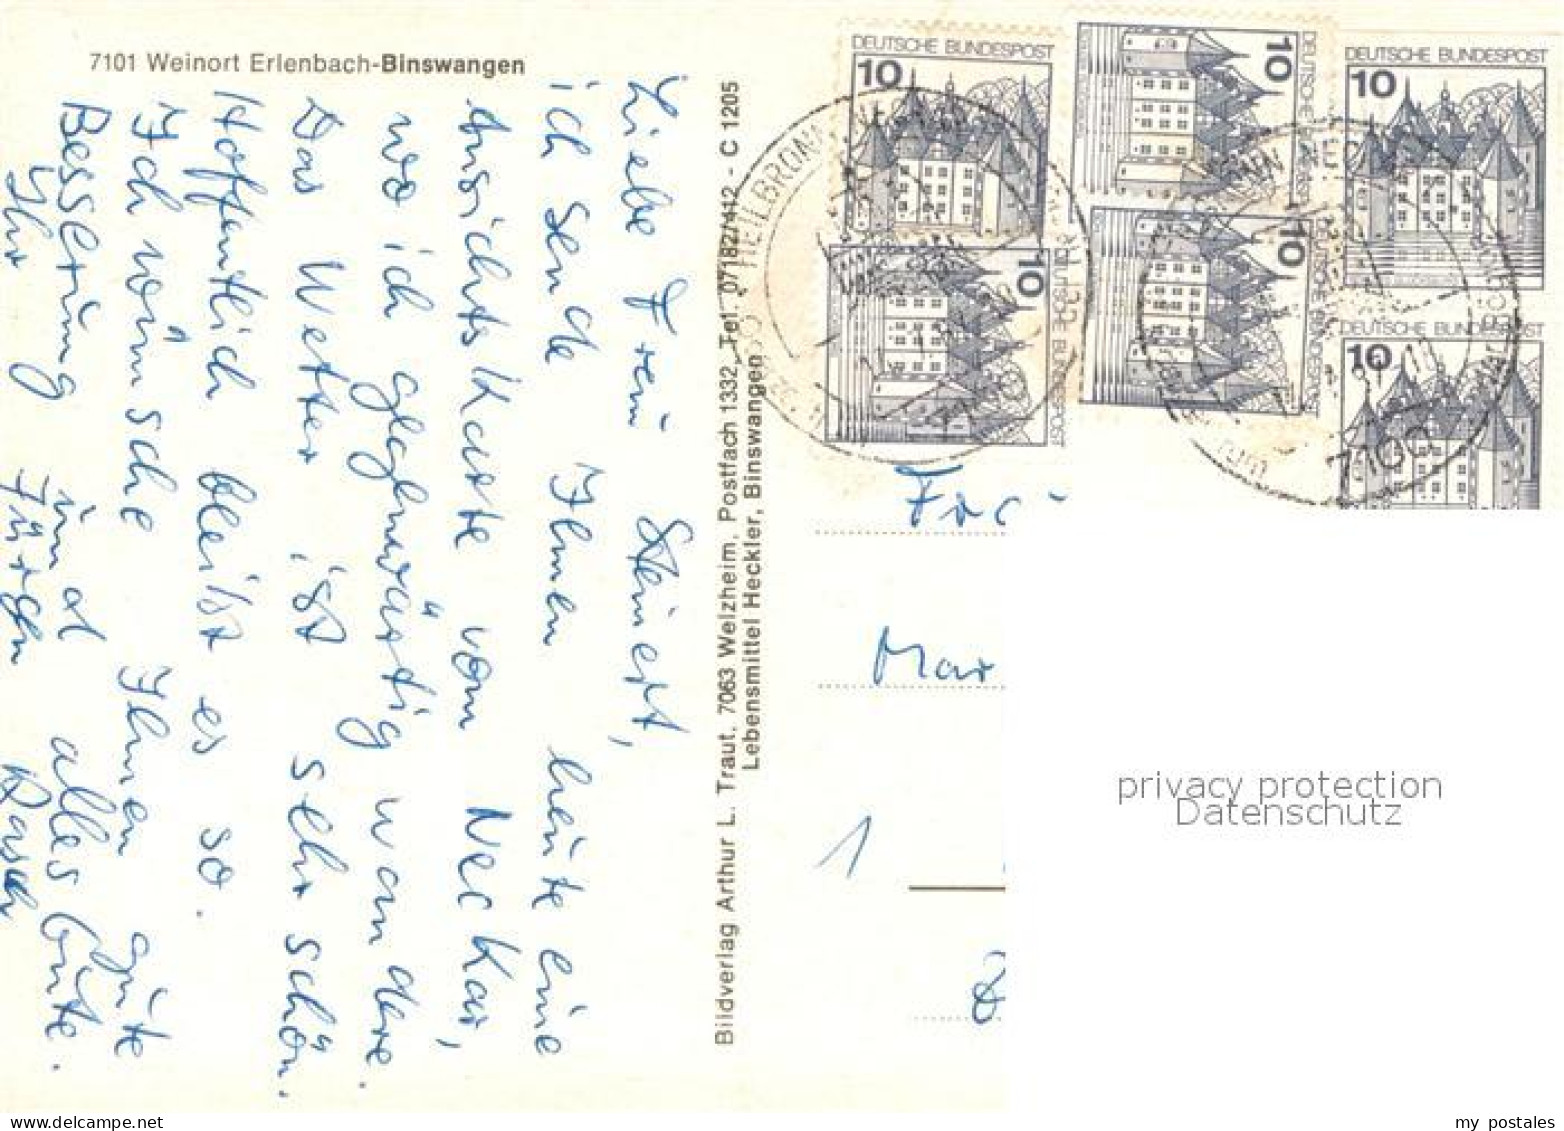 7101 Weinort Erlenbach-Binswangen
Liebe Frau Steinert,
ich sende Ihnen heute eine
Ansichtskarte vom Neckar,
wo ich gegenwärtig wandere.
Das Wetter ist sehr schön.
Hoffentlich bleibt es so.
Ich wünsche Ihnen gute
Besserung und alles Gute.
Ihr Jürgen Rasch
Bildverlag Arthur L. Traut, 7063 Welzheim, Postfach 1332, Tel. 07182/412 - C 1205
Lebensmittel Heckler, Binswangen
DEUTSCHE BUNDESPOST
10
DEUTSCHE BUNDESPOST
10
DEUTSCHE BUNDESPOST
10
DEUTSCHE BUNDESPOST
10
DEUTSCHE BUNDESPOST
10
DEUTSCHE BUNDESPOST
10
HEILBRONN
7100
Mar
1
privacy protection
Datenschutz
my postales